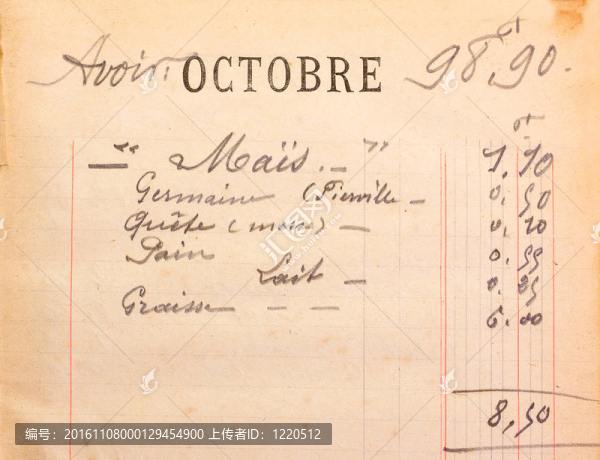 Avoir: OCTOBRE 98,90.
— " Maïs. — " 1,10
Germaine (Pierville — 0,50
Quête (mois) — 0,20
Pain 0,55
Lait — 0.25
Graisse — — 6.00
8,50
编号：20161108000129454900 上传者ID：1220512